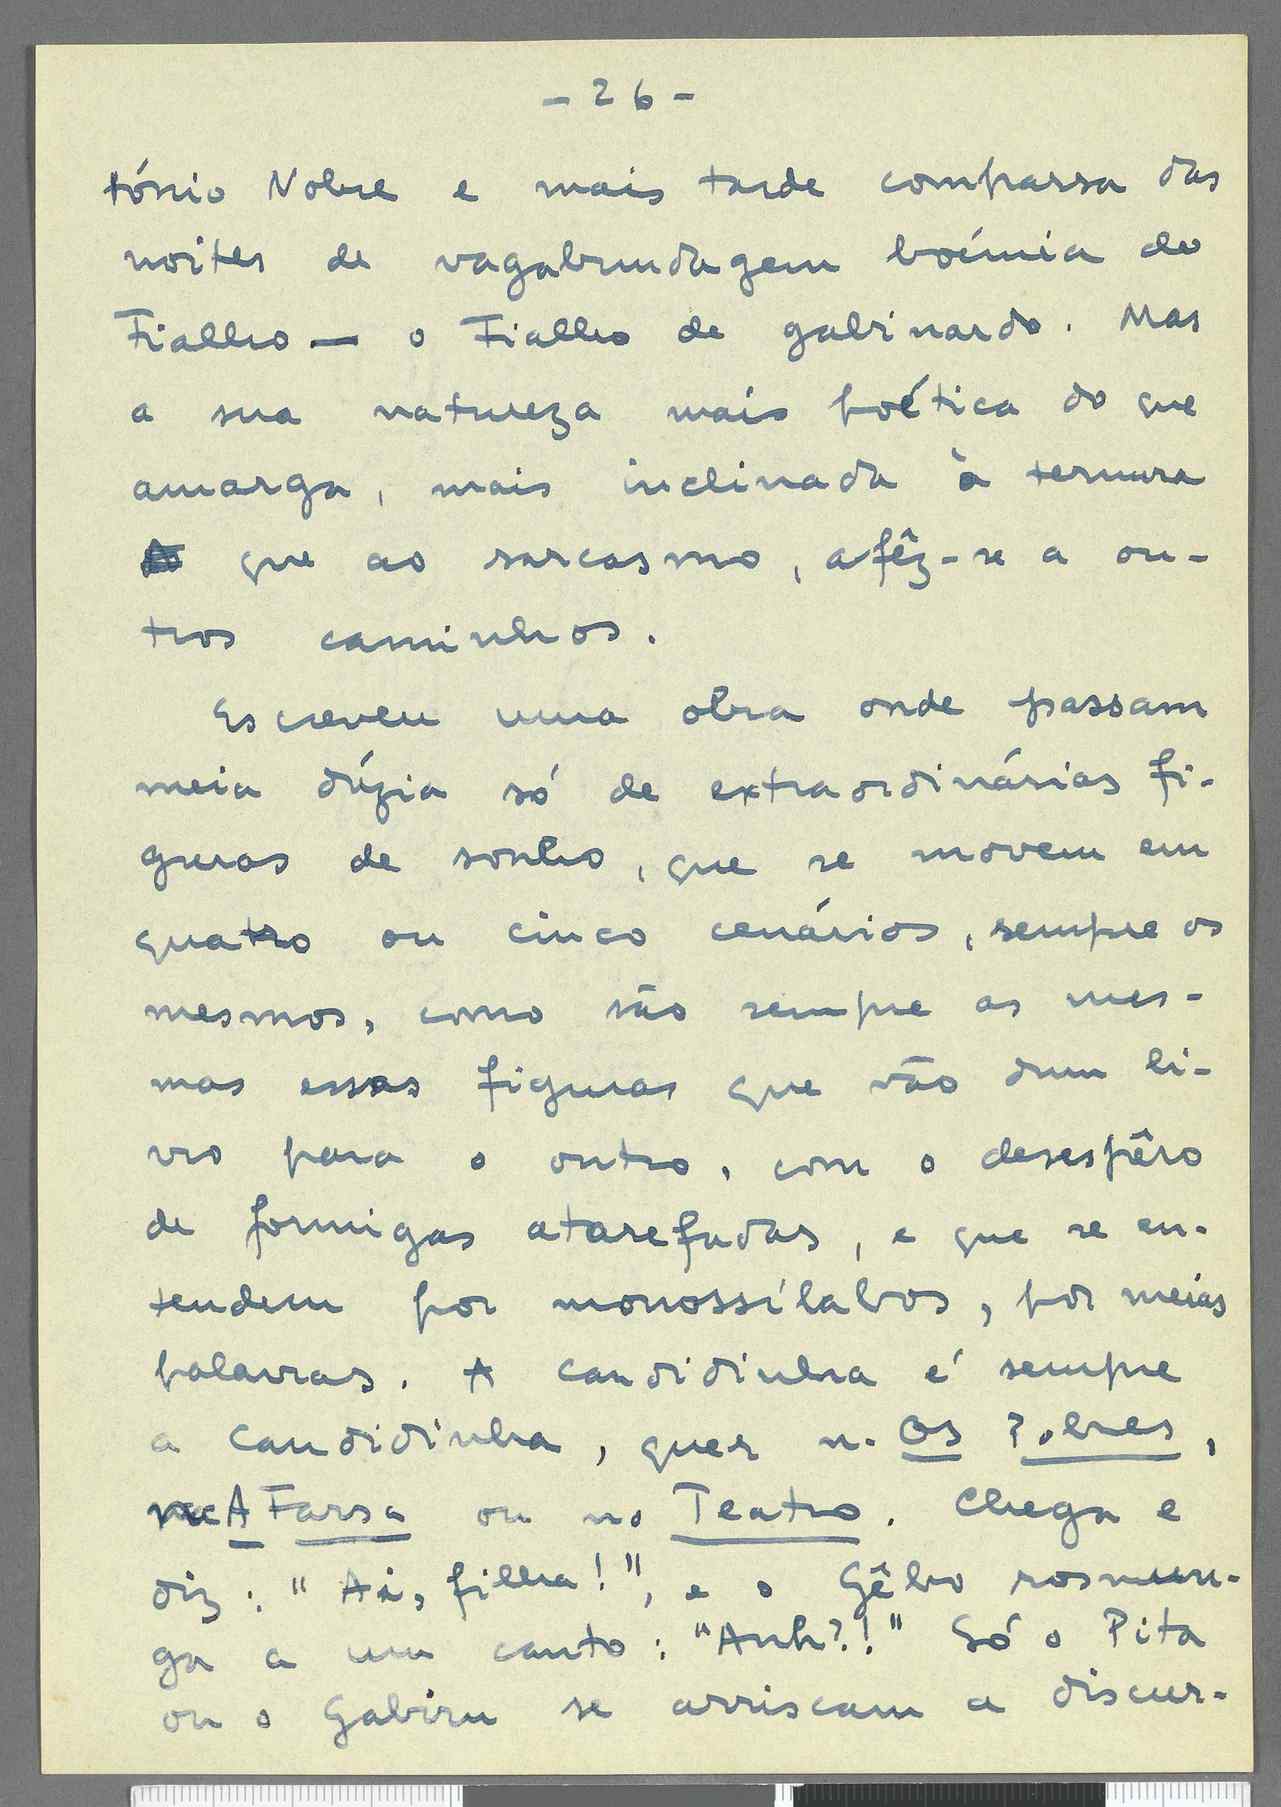 - 26 -
tónio Nobre e mais tarde comparsa das
noites de vagabundagem boémia do
Fialho — o Fialho de gabinardo. Mas
a sua natureza mais poética do que
amarga, mais inclinada à ternura
que ao sarcasmo, afêz-se a ou-
tros caminhos.
Escreveu uma obra onde passam
meia dúzia só de extraordinárias fi-
guras de sonho, que se movem em
quatro ou cinco cenários, sempre os
mesmos, como são sempre as mes-
mas essas figuras que vão dum li-
vro para o outro, com o desespêro
de formigas atarefadas, e que se en-
tendem por monossílabos, por meias
palavras. A Candidinha é sempre
a Candidinha, quer n. Os Pobres,
A Farsa ou no Teatro. Chega e
diz: "Ai, filha!", e o Gêbo rosmun-
ga a um canto: "Anh?!" Só o Pita
ou o Gabiru se arriscam a discur-